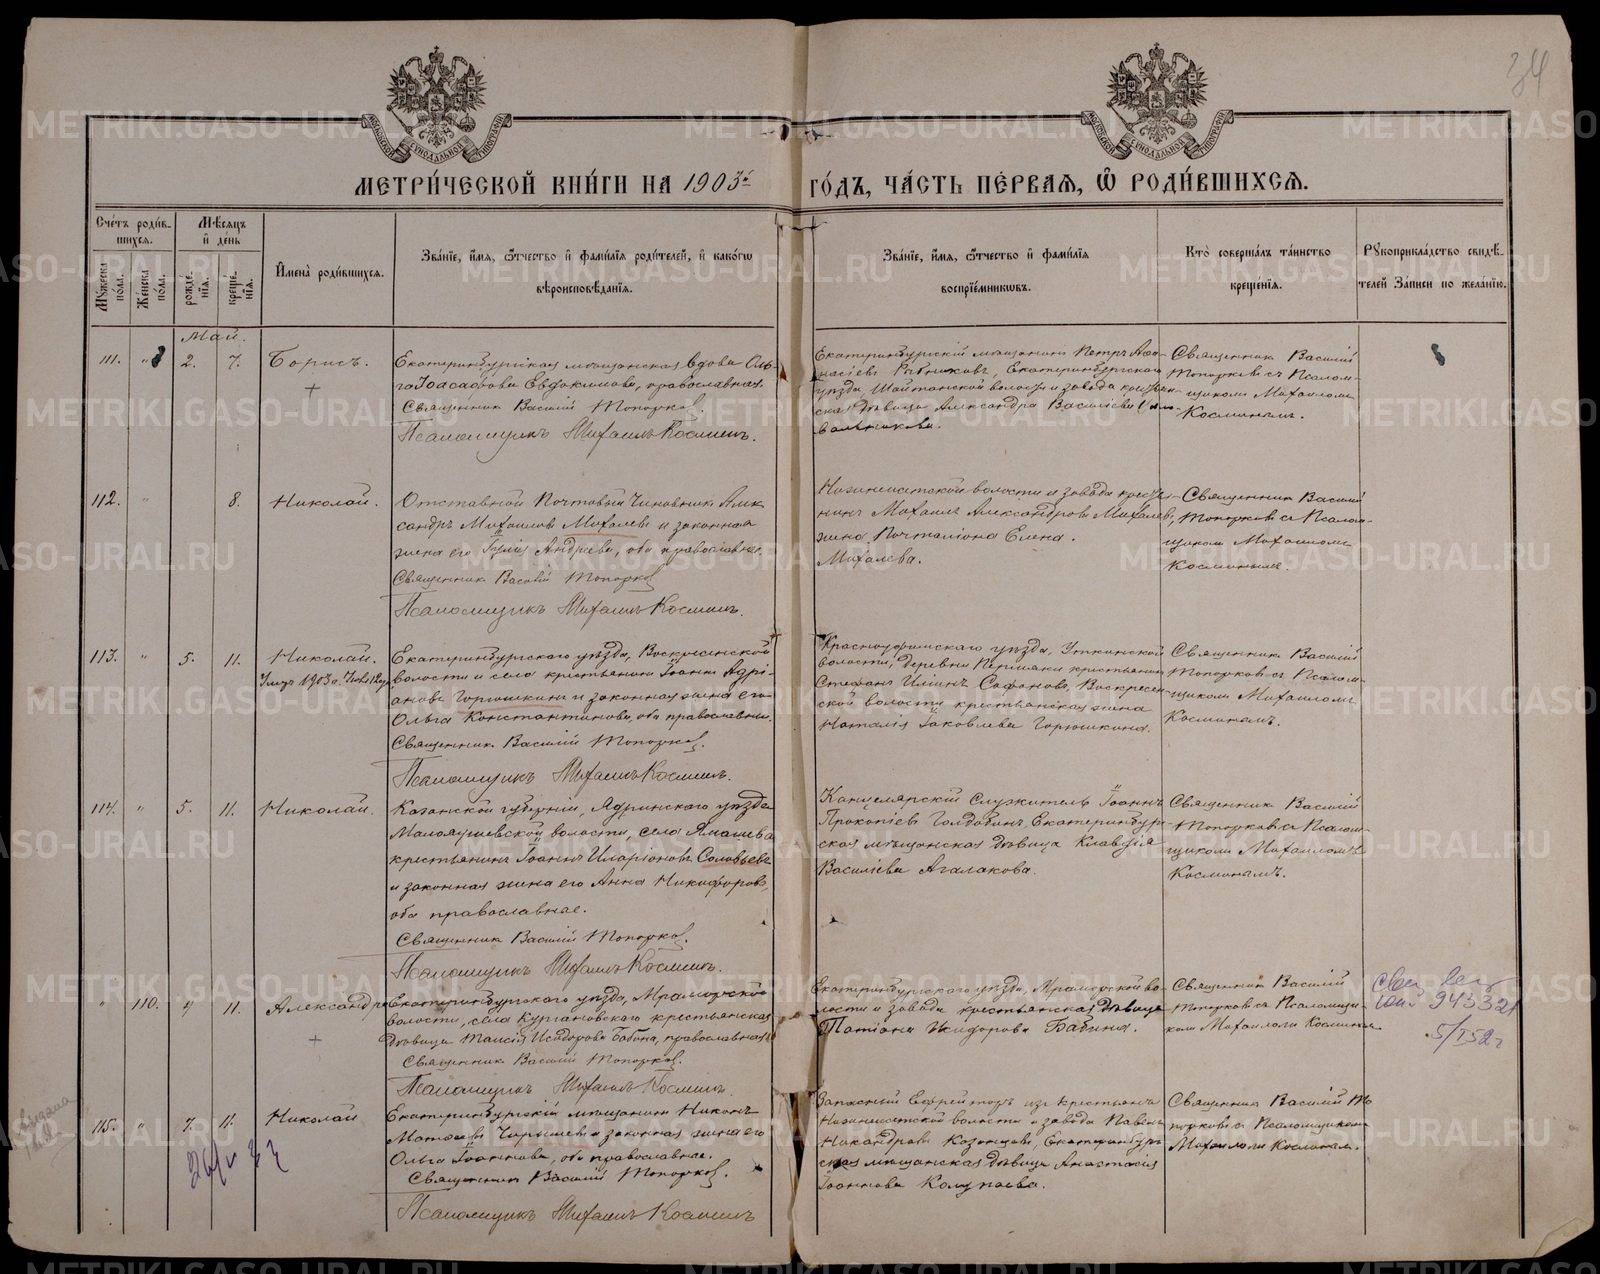 34
МЕТРИ́ЧЕСКОЙ КНИ́ГИ НА 1903й ГО́ДЪ, ЧА́СТЬ ПЕ́РВАЯ, Ѡ РОДИ́ВШИХСЯ.
Сче́тъ роди́в-
шихся.
Му́жеска по́ла.
Же́нска по́ла.
Мѣ́сяцъ и де́нь
рожде́-нїя.
креще́-нїя.
Имена̀ роди́вшихся.
Зва́нїе, и́мя, ѻ́тчество и фами́лїя роди́телей, и како́гѡ
вѣроисповѣ́данїя.
Зва́нїе, и́мя, ѻ́тчество и фами́лїя
воспрїе́мниковъ.
Кто̀ соверша́лъ та́инство
креще́нїя.
Рукоприкла́дство свидѣ́-
телей за́писи по жела́нїю.
Май.
111. " 2. 7. Борисъ.
Екатеринбургская мѣщанская вдова Оль-
га Іоасафова Евдокимова, православная.
Священник Василій Топорков.
Псаломщикъ Михаилъ Косминъ.
Екатеринбургскій мѣщанинъ Петръ Афа-
насіевъ Рябниковъ, Екатеринбургскаго
уѣзда, Шайтанской волости и завода крестьян-
ская дѣвица Александра Василіева
Священникъ Василій
Топорковъ съ Псалом-
щикомъ Михаиломъ
Косминымъ.
112. " 8. Николай.
Отставной Почтовый Чиновникъ Алек-
сандръ Михаиловъ Михалевъ и законная
жена его Юлія Андреева, оба православные.
Священник Василій Топорков
Псаломщикъ Михаилъ Косминъ.
Нязепетровской волости и завода кресть-
нинъ Михаилъ Александровъ Михалевъ,
жена Почталіона Елена
Михалева.
Священникъ Василій
Топорковъ съ Псалом-
щикомъ Михаиломъ
Косминымъ.
113. " 5. 11. Николай.
Умеръ 1903 г.
Екатеринбургскаго уѣзда, Воскресенской
волости и села крестьянинъ Іоаннъ Адрі-
ановъ Горюшкинъ и законная жена его
Ольга Константинова, оба православные.
Священник Василій Топорков.
Псаломщикъ Михаилъ Косминъ.
Красноуфимскаго уѣзда, Уткинской
волости, деревни Пермяки крестьянинъ
Стефанъ Иліинъ Сафоновъ, Воскресен-
ской волости крестьянская жена
Наталія Іаковлева Горюшкина.
Священникъ Василій
Топорковъ съ Псалом-
щикомъ Михаиломъ
Косминымъ.
114. " 5. 11. Николай.
Казанской губерніи, Ядринскаго уѣзда
Малояушевской волости, села Янашева
крестьянинъ Іоаннъ Иларіоновъ Соловьевъ
и законная жена его Анна Никифорова,
оба православные.
Священник Василій Топорков.
Псаломщикъ Михаилъ Косминъ.
Канцелярскій Служитель Іоаннъ
Прокопіевъ Голдобинъ, Екатеринбург-
ская мѣщанская дѣвица Клавдія
Василіева Агалакова.
Священникъ Василій
Топорковъ съ Псалом-
щикомъ Михаиломъ
Косминымъ.
" 110. 9 11. Александра
Екатеринбургскаго уѣзда, Мраморской
волости, села Кургановскаго крестьянская
дѣвица Таисія Исидорова Бабина, православная
Священник Василій Топорков.
Псаломщикъ Михаилъ Косминъ.
Екатеринбургскаго уѣзда, Мраморской во-
лости и завода крестьянская дѣвица
Татіана Исидорова Бабина.
Священникъ Василій
Топорковъ съ Псаломщи-
комъ Михаиломъ Косминымъ
943321
5/I 52 г
115. " 7. 11. Николай
Екатеринбургскій мѣщанинъ Никонъ
Матѳеевъ Чирышевъ и законная жена его
Ольга Іоаннова, оба православные.
Священникъ Василій Топорков.
Псаломщикъ Михаилъ Косминъ
Запасный Ефрейторъ изъ крестьянъ
Нязепетровской волости и завода Павелъ
Никандровъ Казанцевъ, Екатеринбург-
ская мѣщанская дѣвица Анастасія
Іоаннова Колупаева.
Священникъ Василій То-
порковъ съ Псаломщикомъ
Михаиломъ Косминымъ.
METRIKI.GASO-URAL.RU